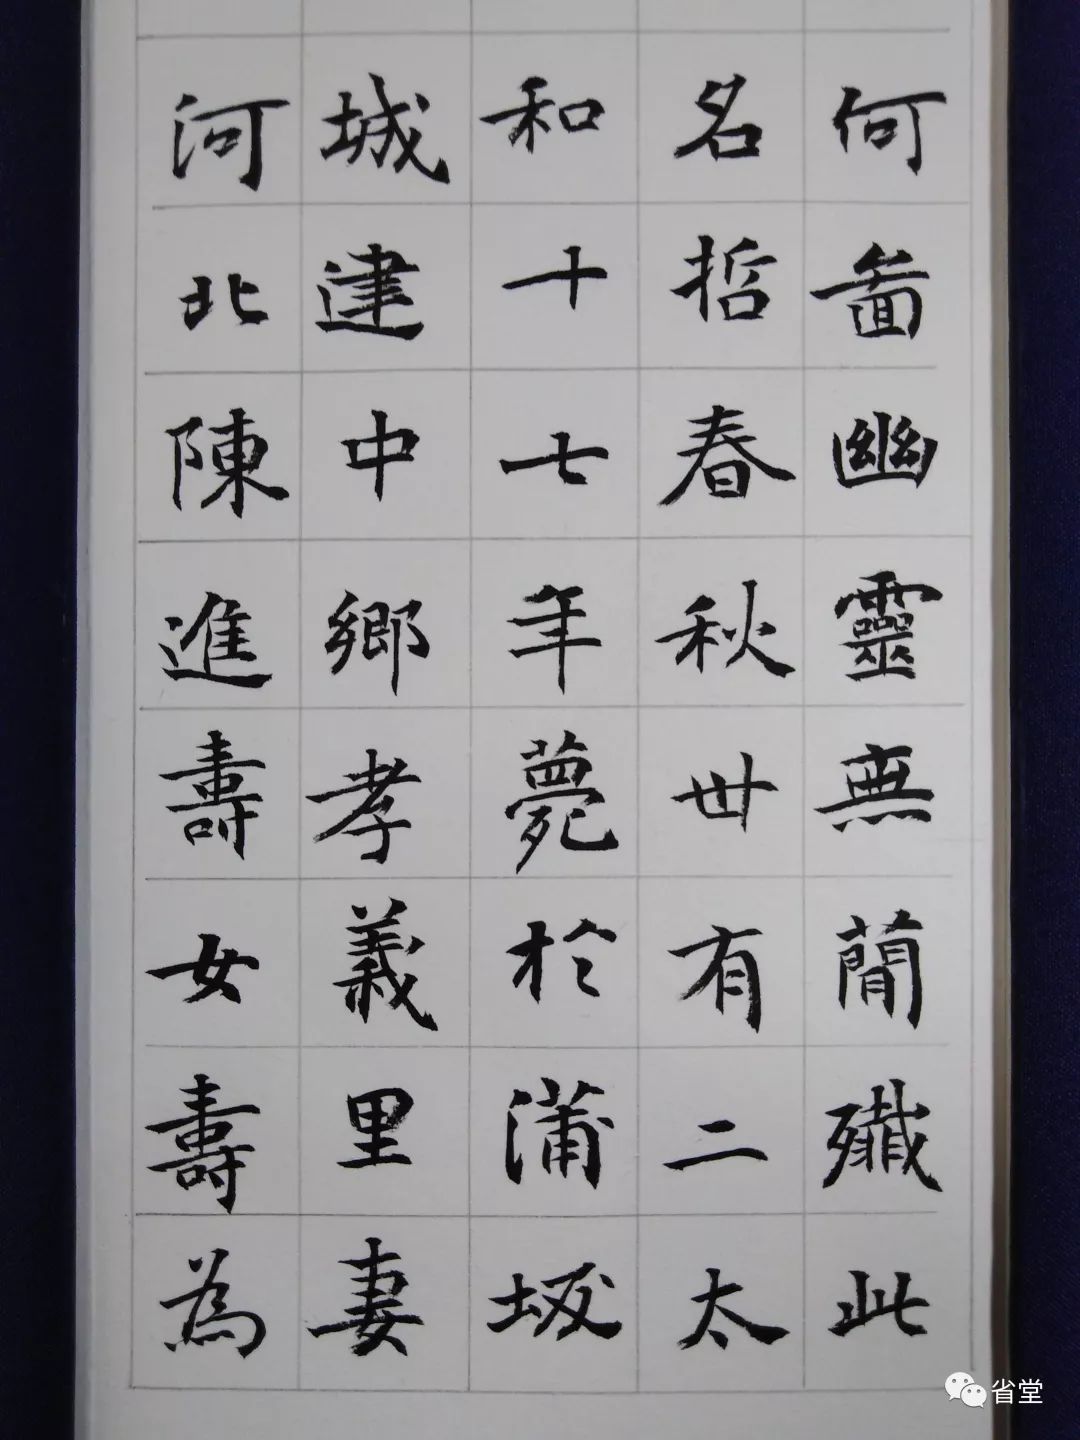 何啚幽靈無簡殲此
名哲春秋丗有二太
和十七年薨於蒲坂
城建中鄉孝義里妻
河北陳進壽女壽為
省堂